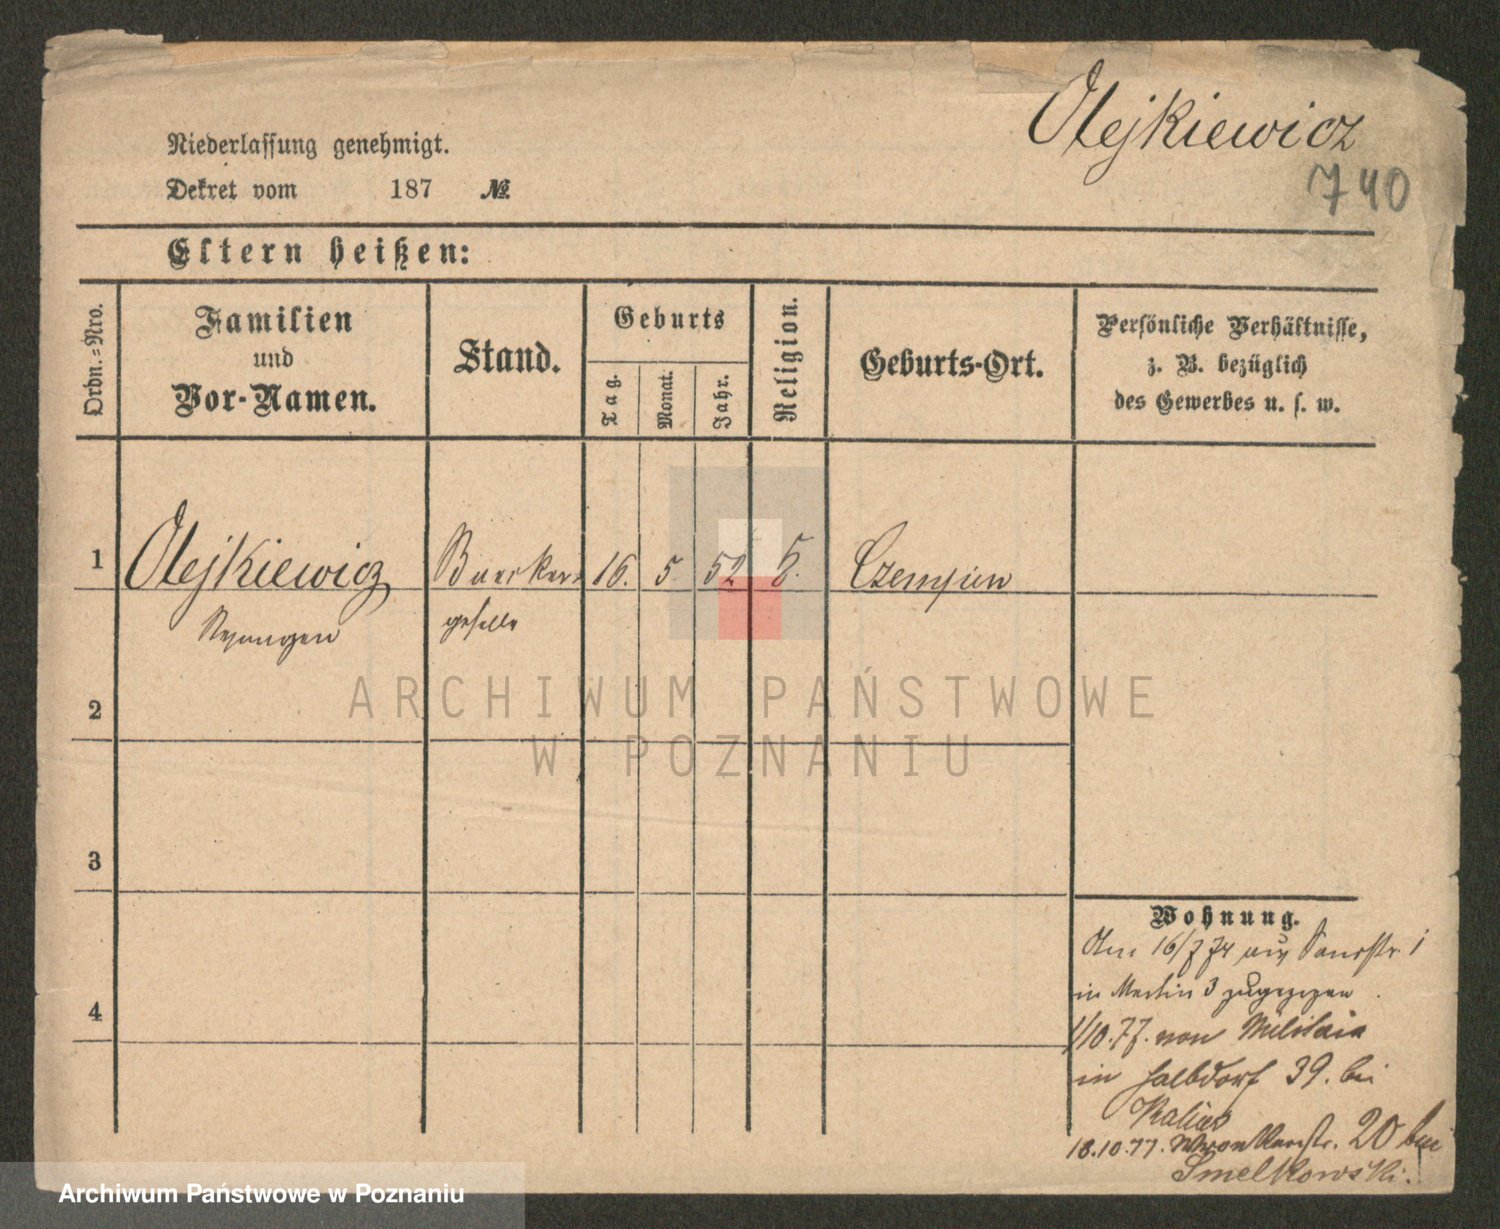 Olejkiewicz
740
Niederlassung genehmigt.
Dekret vom 187 №
Eltern heißen:
Ordn.=Nro.
Familien
und
Vor-Namen.
Stand.
Geburts
Tag.
Monat.
Jahr.
Religion.
Geburts-Ort.
Persönliche Verhältnisse,
z. B. bezüglich
des Gewerbes u. s. w.
1 Olejkiewicz 16. 5 52 Czempin
geselle
2
3
4
Wohnung.
16/7 74 aus 1
in 3 zugezogen
1/10.77. von Militair
in Halbdorf 39. bei
18.10.77. Wronkerstr. 20 bei
Smelkowski.
ARCHIWUM PAŃSTWOWE
W POZNANIU
Archiwum Państwowe w Poznaniu